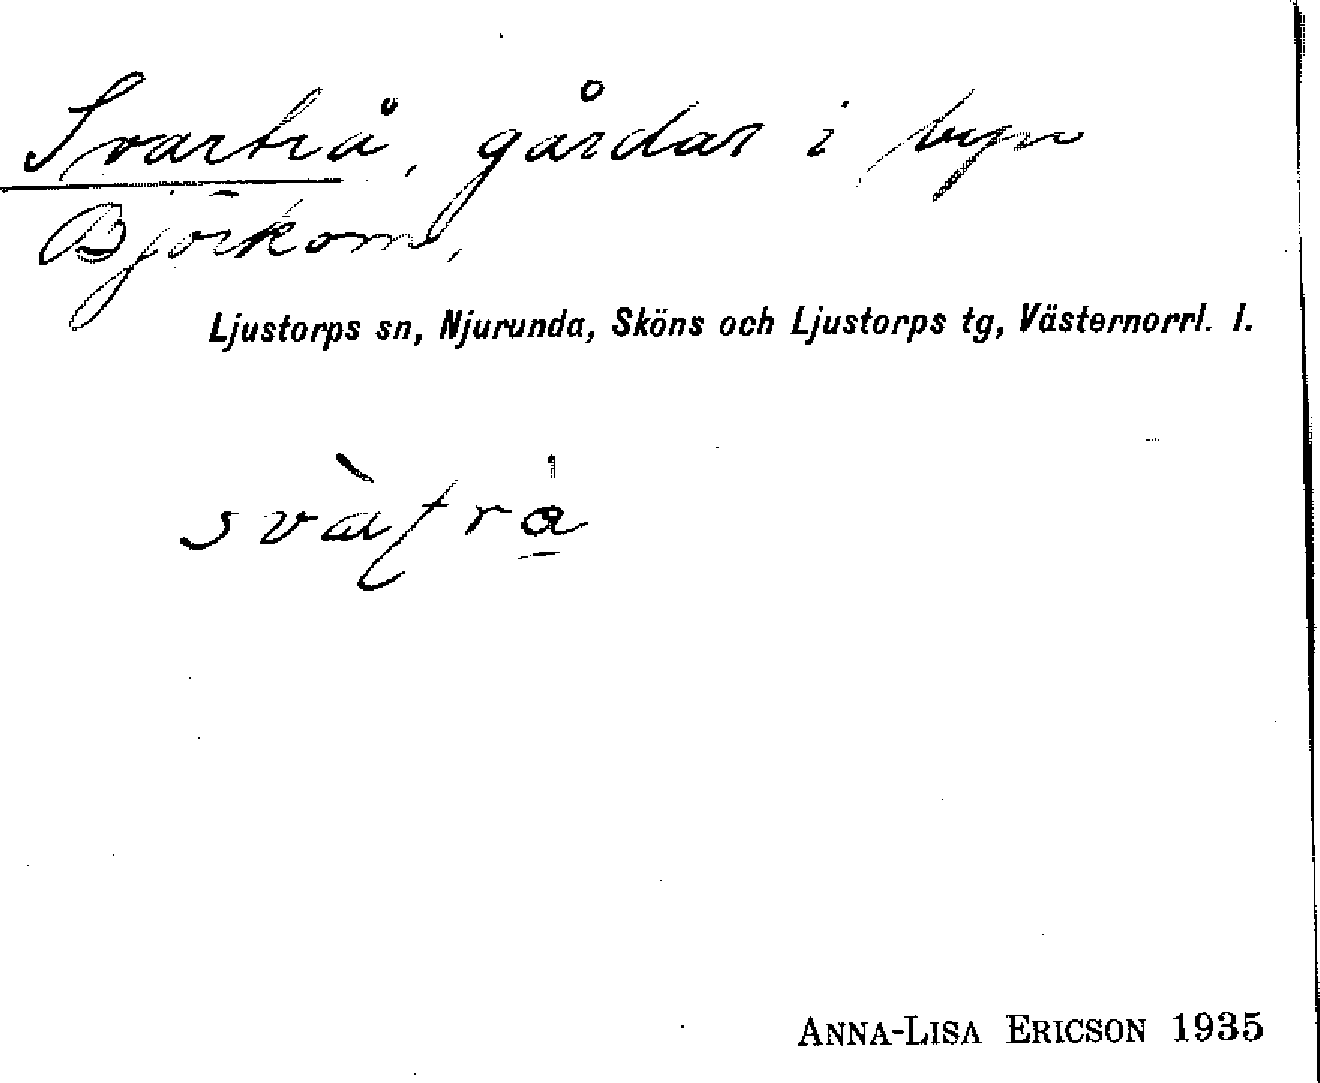 Svarträ, gårdar i byn
Björkom,
Ljustorps sn, Njurunda, Sköns och Ljustorps tg, Västernorrl. l.
ANNA-LISA ERICSON 1935